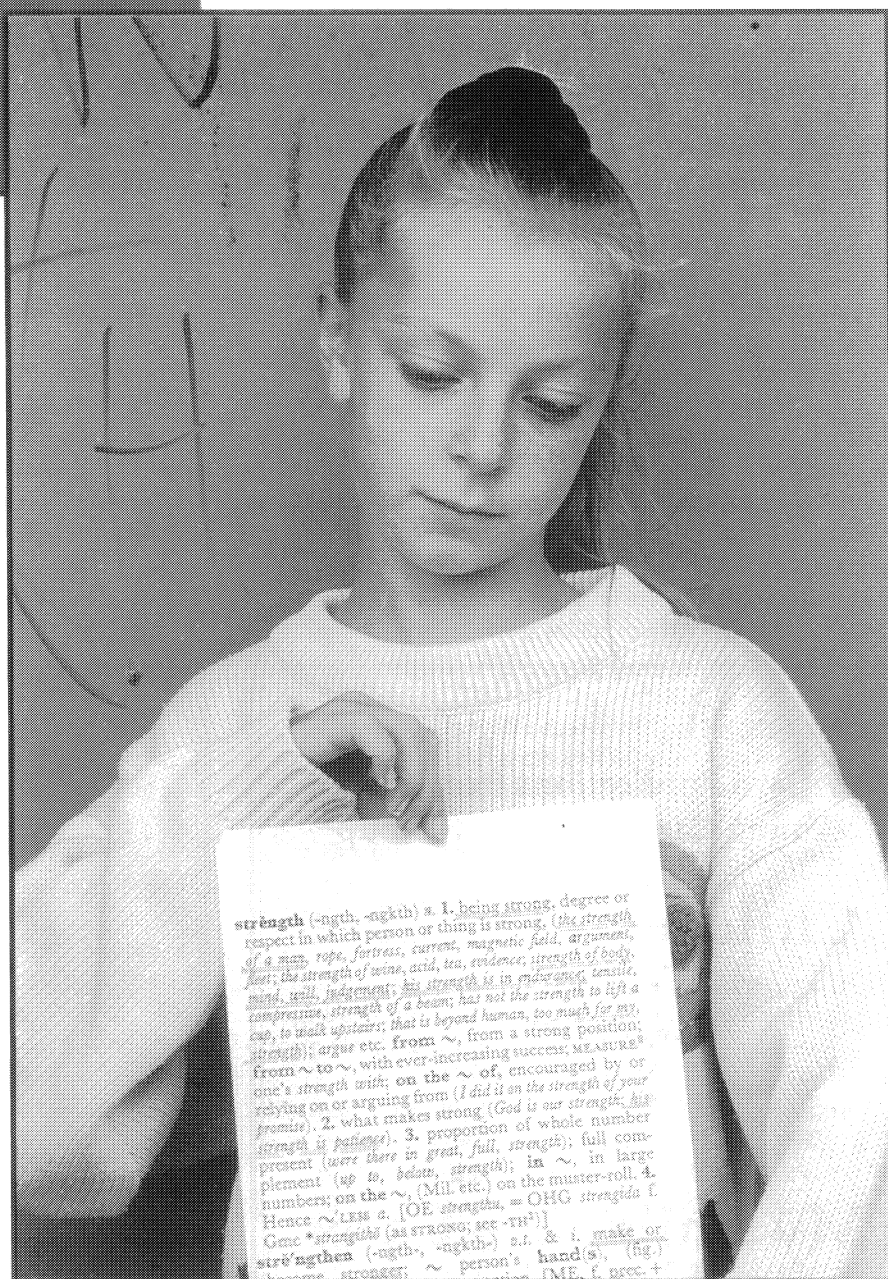 strĕngth (-ngth, -ngkth) n. 1. being strong, degree or
respect in which person or thing is strong, (the strength
of a man, rope, fortress, current, magnetic field, argument,
fleet; the strength of wine, acid, tea, evidence; strength of body,
mind, will, judgement; his strength is in endurance; tensile,
compressive, strength of a beam; has not the strength to lift a
cup, to walk upstairs; that is beyond human, too much for my,
strength); argue etc. from ~, from a strong position;
from ~ to ~, with ever-increasing success; MEASURE²
one's strength with; on the ~ of, encouraged by or
relying on or arguing from (I did it on the strength of your
promise). 2. what makes strong (God is our strength; his
strength is patience). 3. proportion of whole number
present (were there in great, full, strength); full com-
plement (up to, below, strength); in ~, in large
numbers; on the ~, (Mil. etc.) on the muster-roll. 4.
Hence ~'LESS a. [OE strengthu, = OHG strengida f.
Gmc *strangithō (as STRONG; see -TH¹)]
strĕ'ngthen (-ngth-, -ngkth-) v.t. & i. make or
become stronger; ~ person's hand(s), (fig.)
[ME, f. prec. +